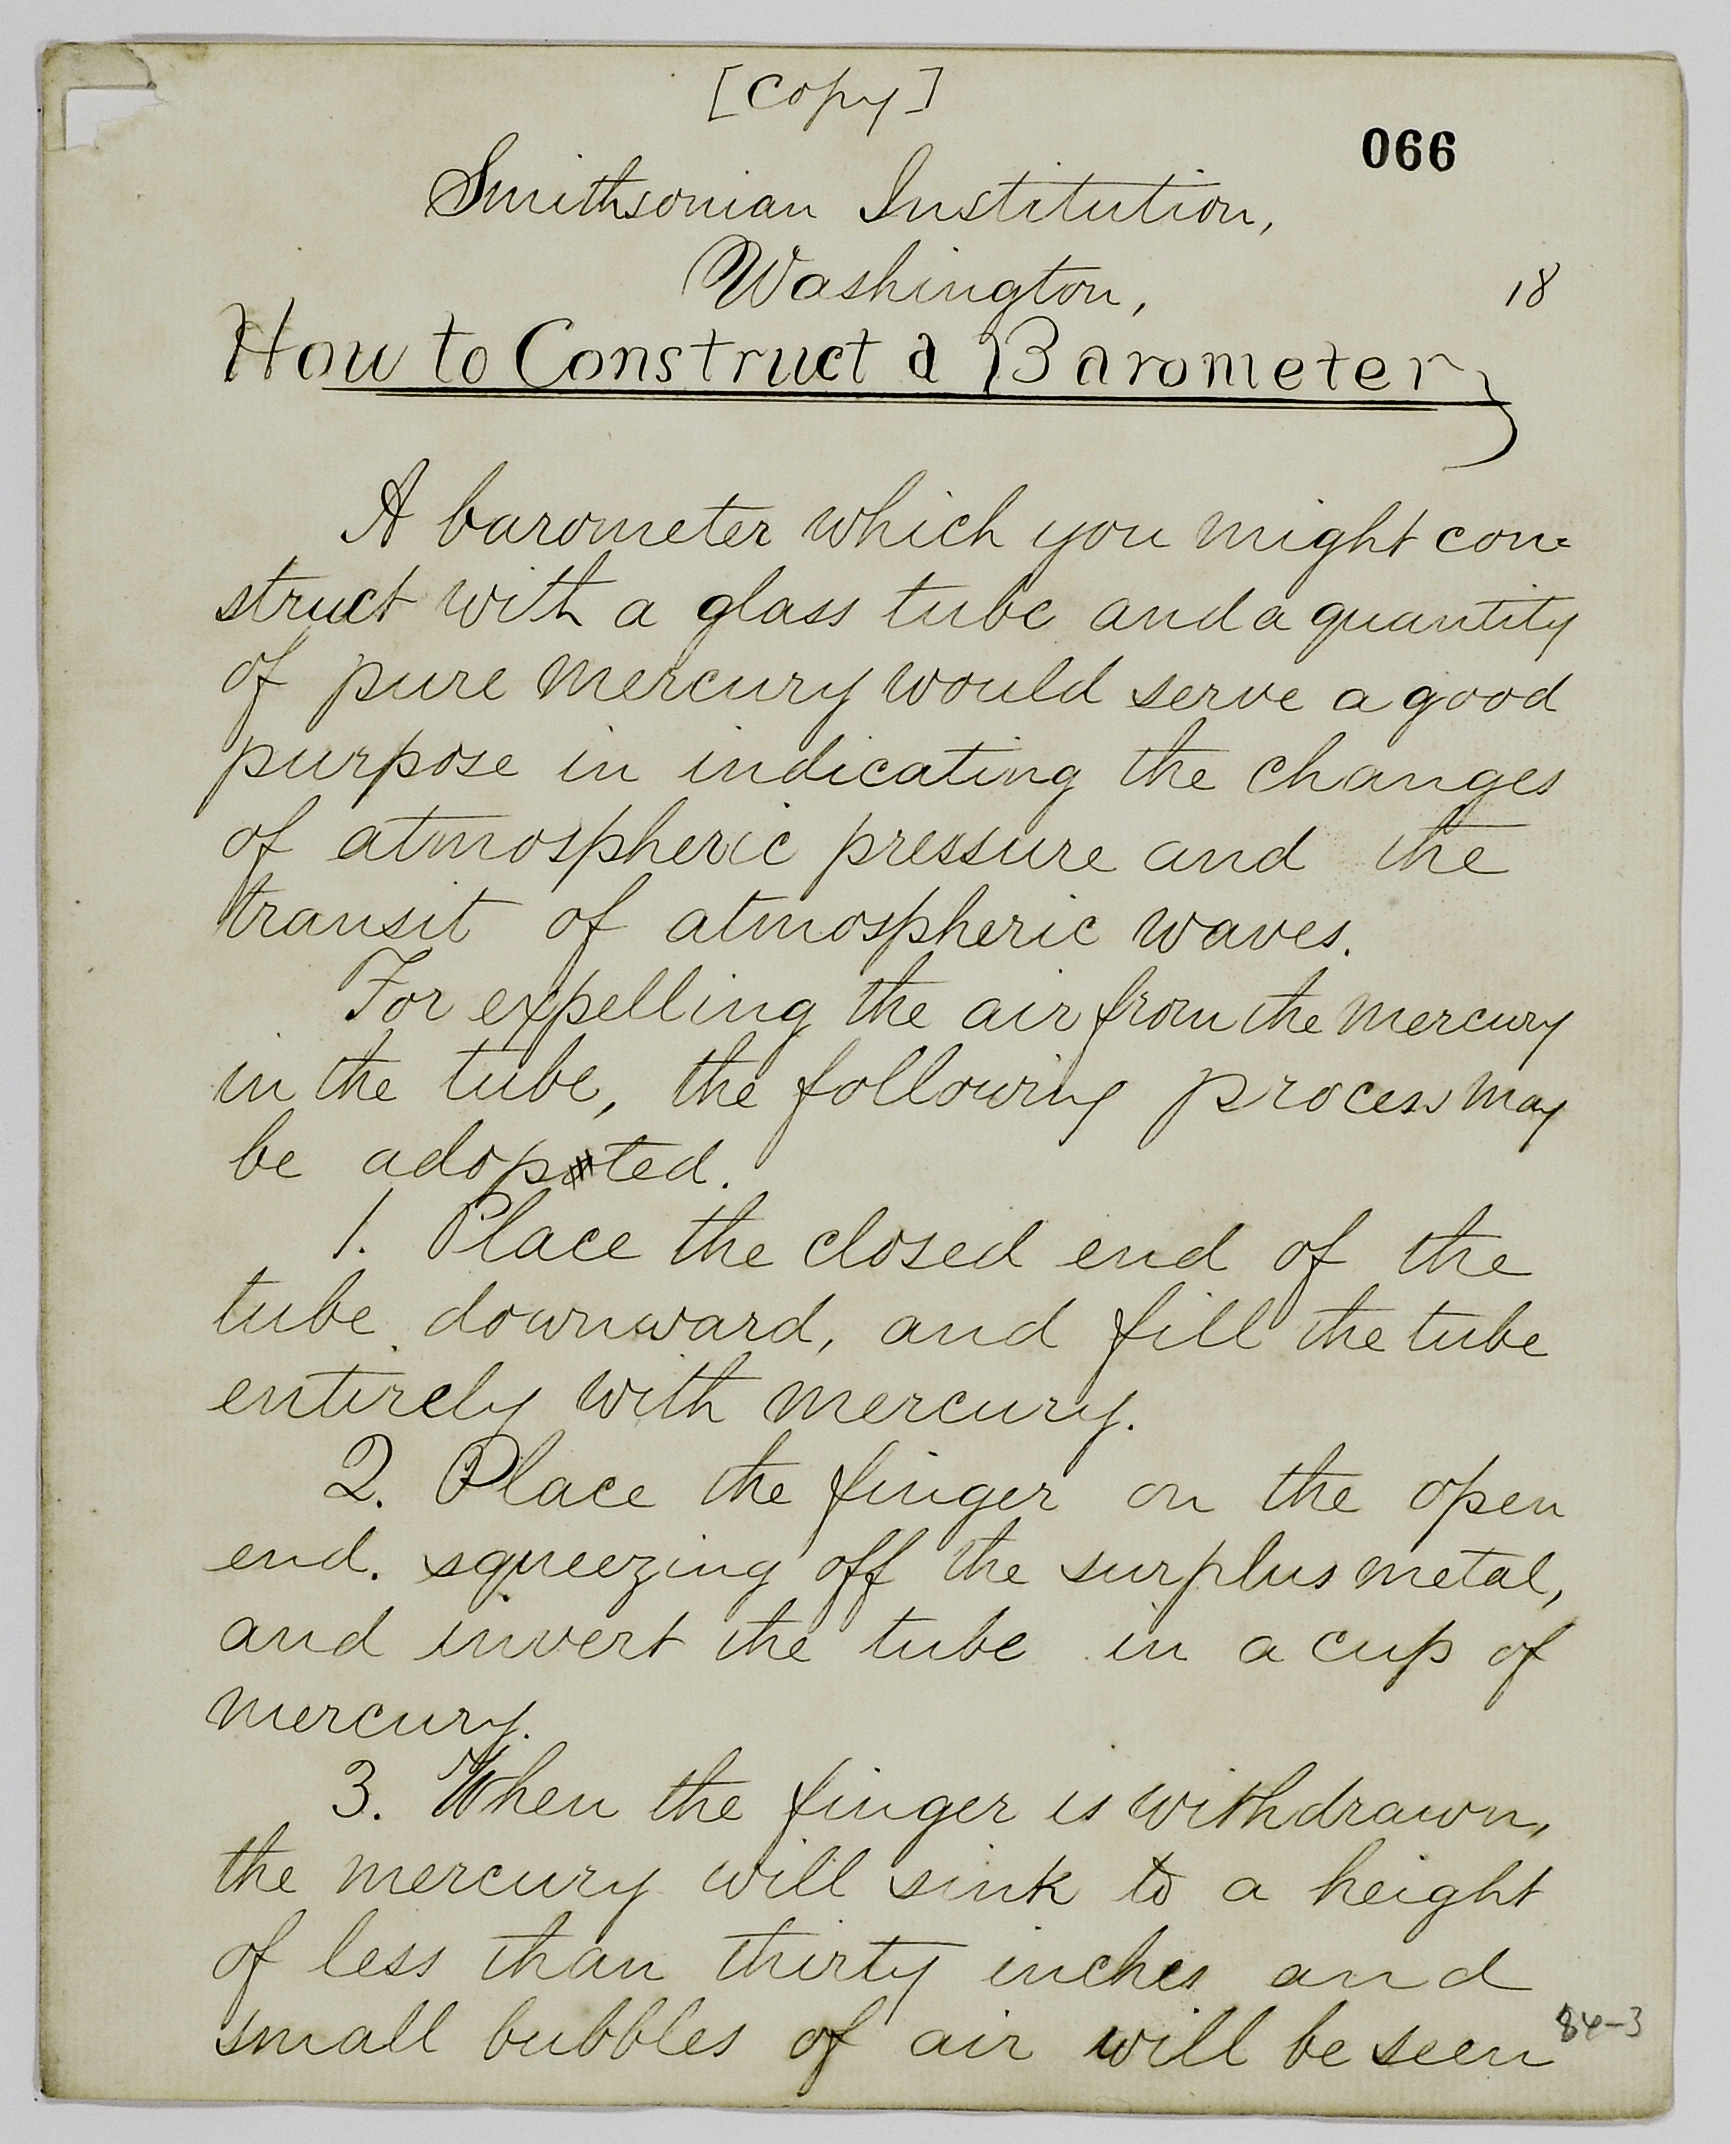 [Copy]
066
Smithsonian Institution,
Washington, 18
How to Construct a Barometer
A barometer which you might con=
struct with a glass tube and a quantity
of pure mercury would serve a good
purpose in indicating the changes
of atmospheric pressure and the
transit of atmospheric waves.
For expelling the air from the mercury
in the tube, the following process may
be adopted.
1. Place the closed end of the
tube downward, and fill the tube
entirely with mercury.
2. Place the finger on the open
end. squeezing off the surplus metal,
and invert the tube in a cup of
mercury.
3. When the finger is withdrawn,
the mercury will sink to a height
of less than thirty inches and
small bubbles of air will be seen
84-3